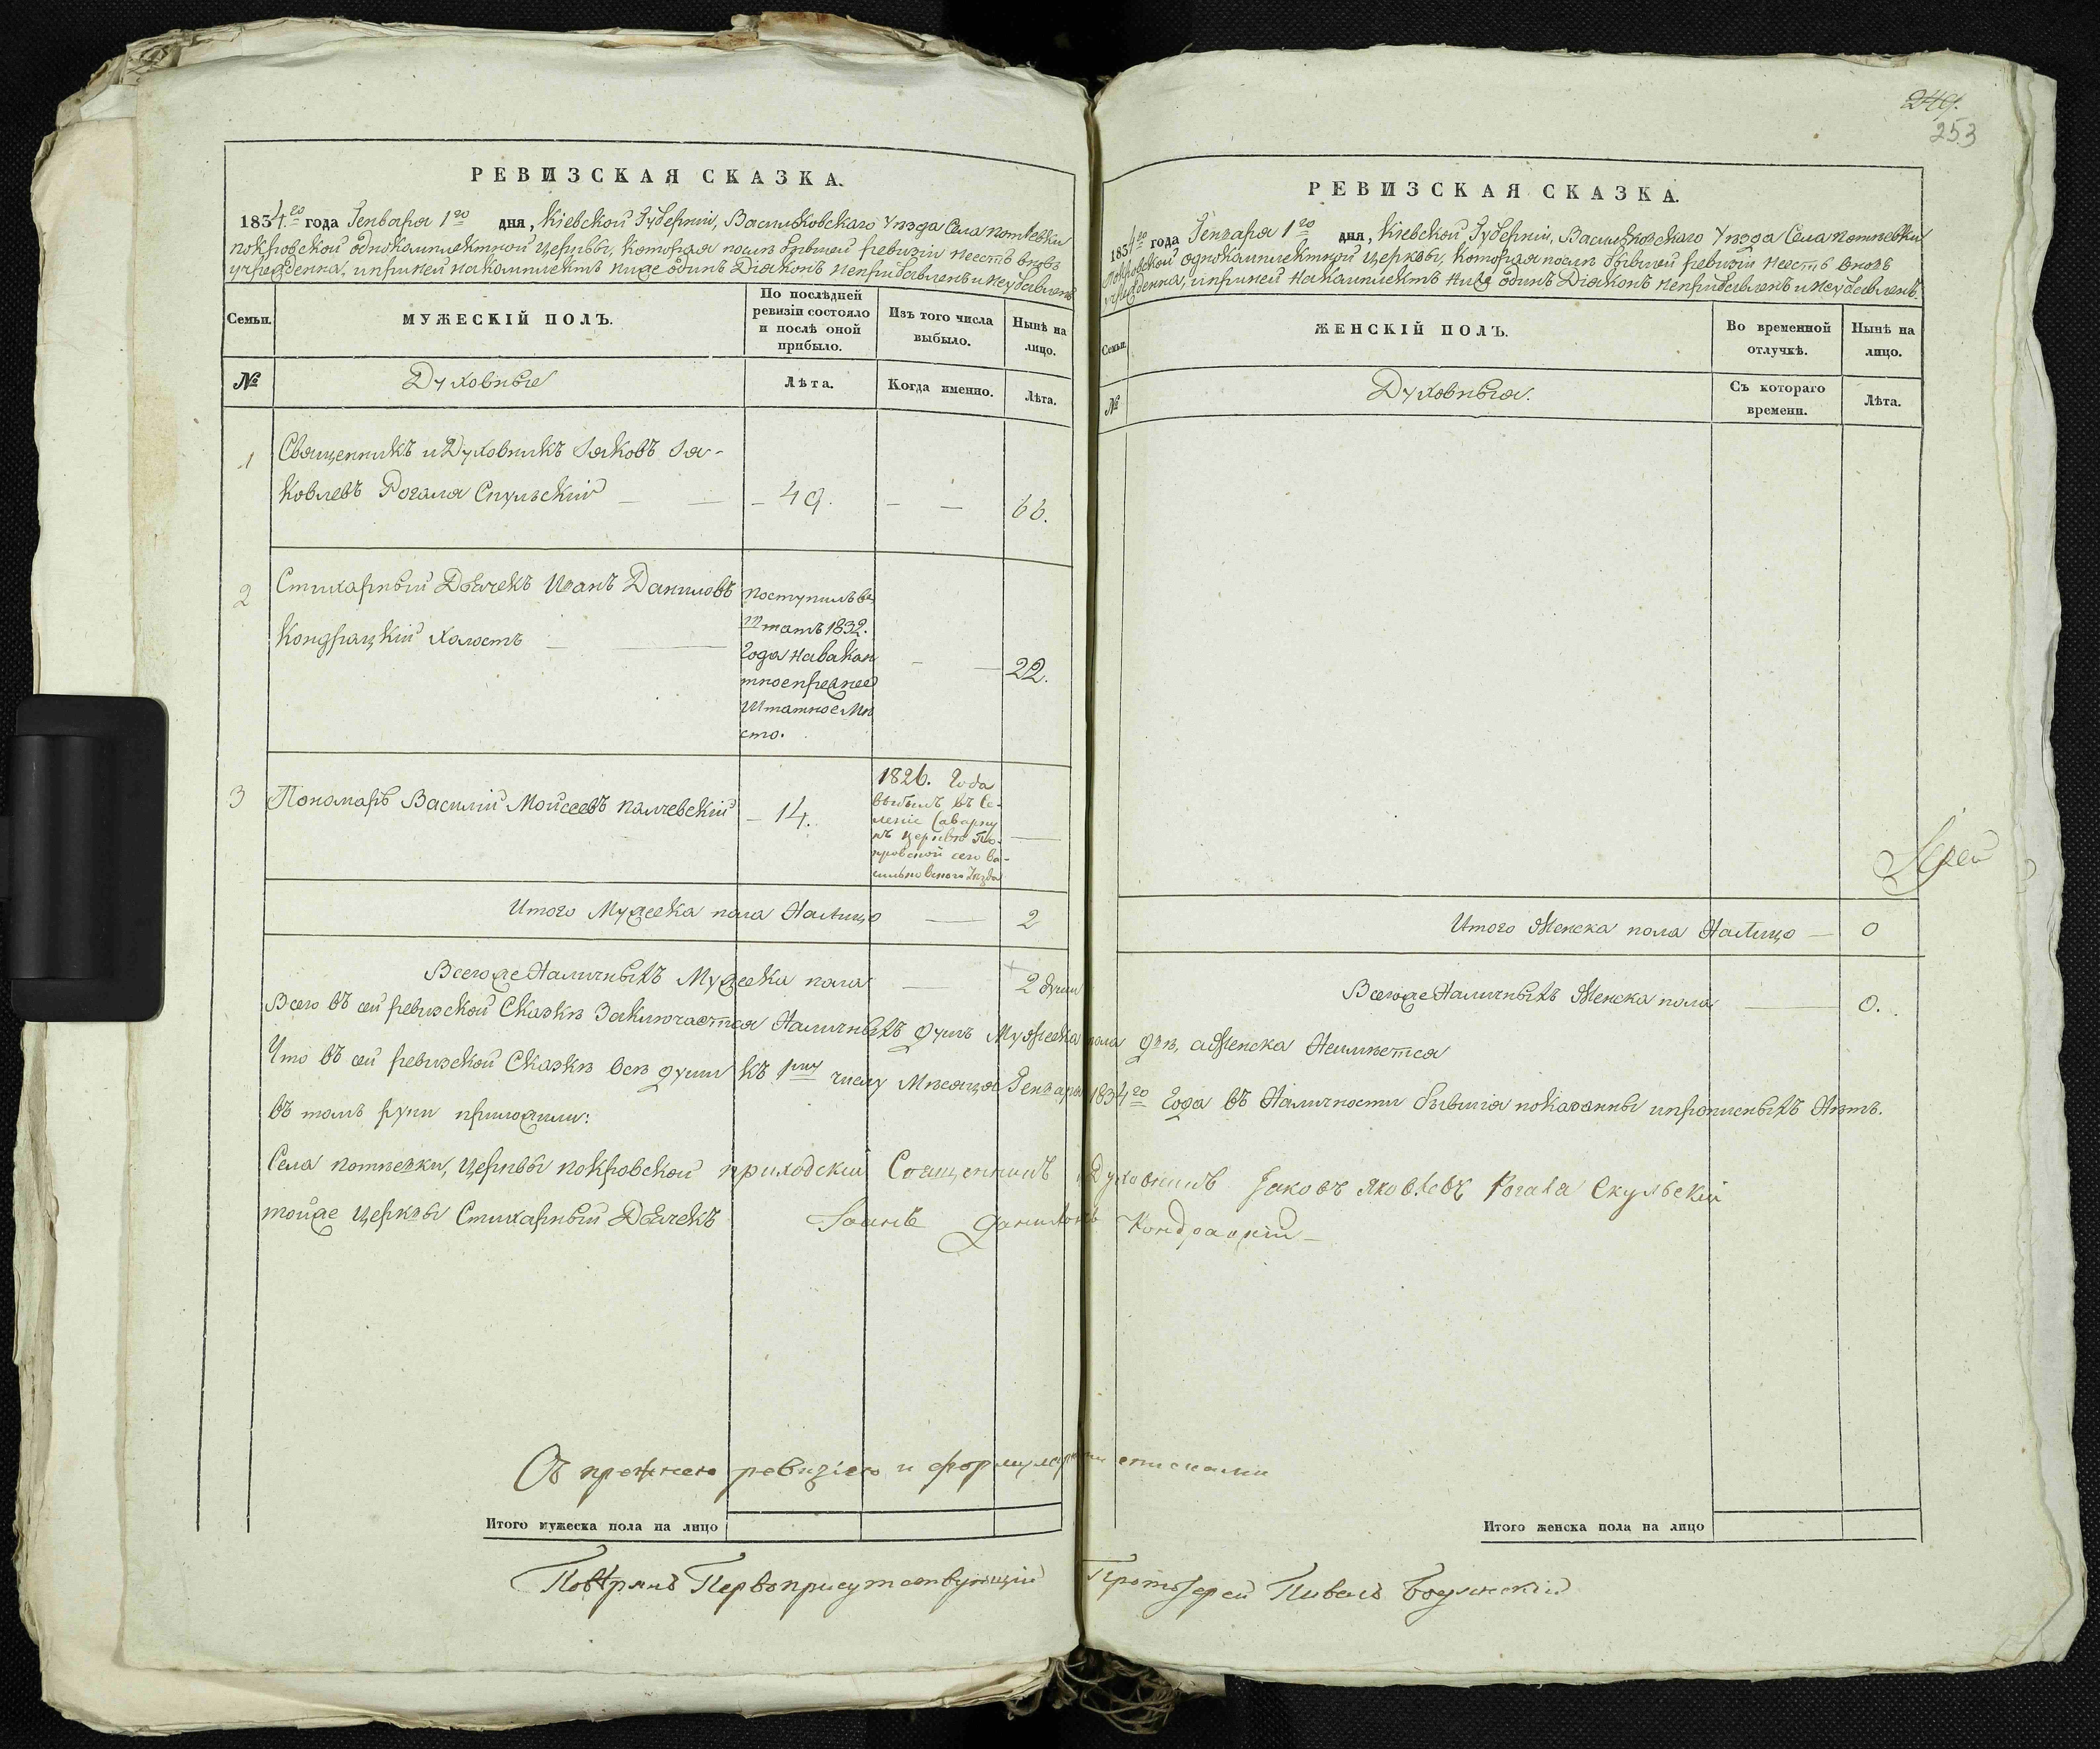 249.
253
РЕВИЗСКАЯ СКАЗКА.
1834го года Генваря 1го дня, Кіевской Губерніи, Васильковскаго Уѣзда Села Потѣевки
Покровской однокамплектной церквы, которая послѣ бывшей ревизіи неесть вновь
учрежденна, ипринеи накамплектъ ниже одинъ Діаконъ неприбавленъ и неубавленъ
Семьи.
МУЖЕСКІЙ ПОЛЪ.
По послѣдней
ревизіи состояло
и послѣ оной
прибыло.
Изъ того числа
выбыло.
Нынѣ на
лицо.
№
Духовные
Лѣта.
Когда именно.
Лѣта.
1
Священникъ и Духовникъ Іаковъ Іа-
ковлевъ Рогаля Скульскій — — — 49. — — 66.
2
Стихарный Дьячекъ Иванъ Даниловъ
Кондрацкій холостъ — —
поступилъ въ
штатъ 1832.
Года навакан
тноепрежнее
Штатное Мѣ
сто.
— — 22.
3
Пономарь Василій Моисеевъ Палчевскій — 14.
1826. Года
выбылъ въ Се-
леніе Саварку
къ церквѣ По-
кровской сего Ва-
сильковского Уезда
—
Итого Мужеска пола Налицо — 2
Всегоже Наличныхъ Мужеска пола — 2 души
РЕВИЗСКАЯ СКАЗКА.
1834го года Генваря 1го дня, Кіевской Губерніи, Васильковскаго Уѣзда Села Потѣевки
Покровской однокамплектной церквы, которая послѣ бывшей ревизіи неесть вновь
учрежденна, ипринеи накамплектъ ниже одинъ Діаконъ неприбавленъ и неубавленъ.
Семьи.
ЖЕНСКІЙ ПОЛЪ.
Во временной
отлучкѣ.
Нынѣ на
лицо.
№
Духовныя.
Съ котораго
времени.
Лѣта.
Іерей
Итого Женска пола Налицо — 0
Всегоже Наличныхъ Женска пола — 0.
Всего въ сей ревизской Сказкѣ Заключается Наличныхъ душъ Мужеска пола двѣ, аЖенска Неимѣется
Что въ сей ревизской Сказкѣ всѣ души къ 1му числу Мѣсяца Генваря 1834го Года въ Наличности бывшія показанны ипрописныхъ Нѣтъ.
въ томъ руки приложили:
Села Потѣевки, Церквы Покровской приходскій Священникъ и Духовникъ Іаковъ Яковлевъ Рогаля Скульскій
тойже Церквы Стихарный Дьячекъ Іоанъ Даниловъ Кондрацкій —
Съ прежнею ревизіею и формулярными списками
Итого мужеска пола на лицо
Итого женска пола на лицо
Повѣрялъ Первоприсутствующій Протоіерей Павелъ